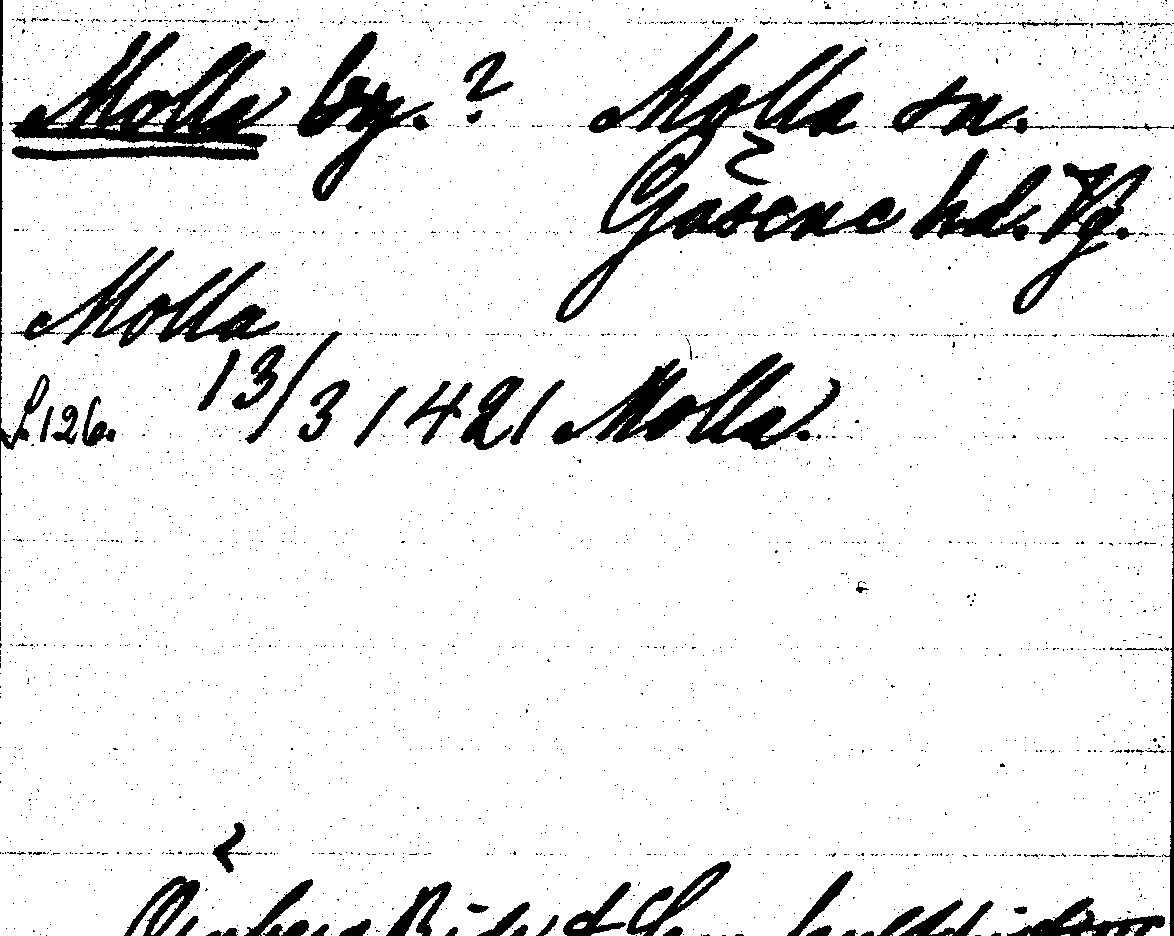 Molla by.? Molla sn.
Gäsene hd. Vg.
Molla
S.126. 13/3 1421 Molla.